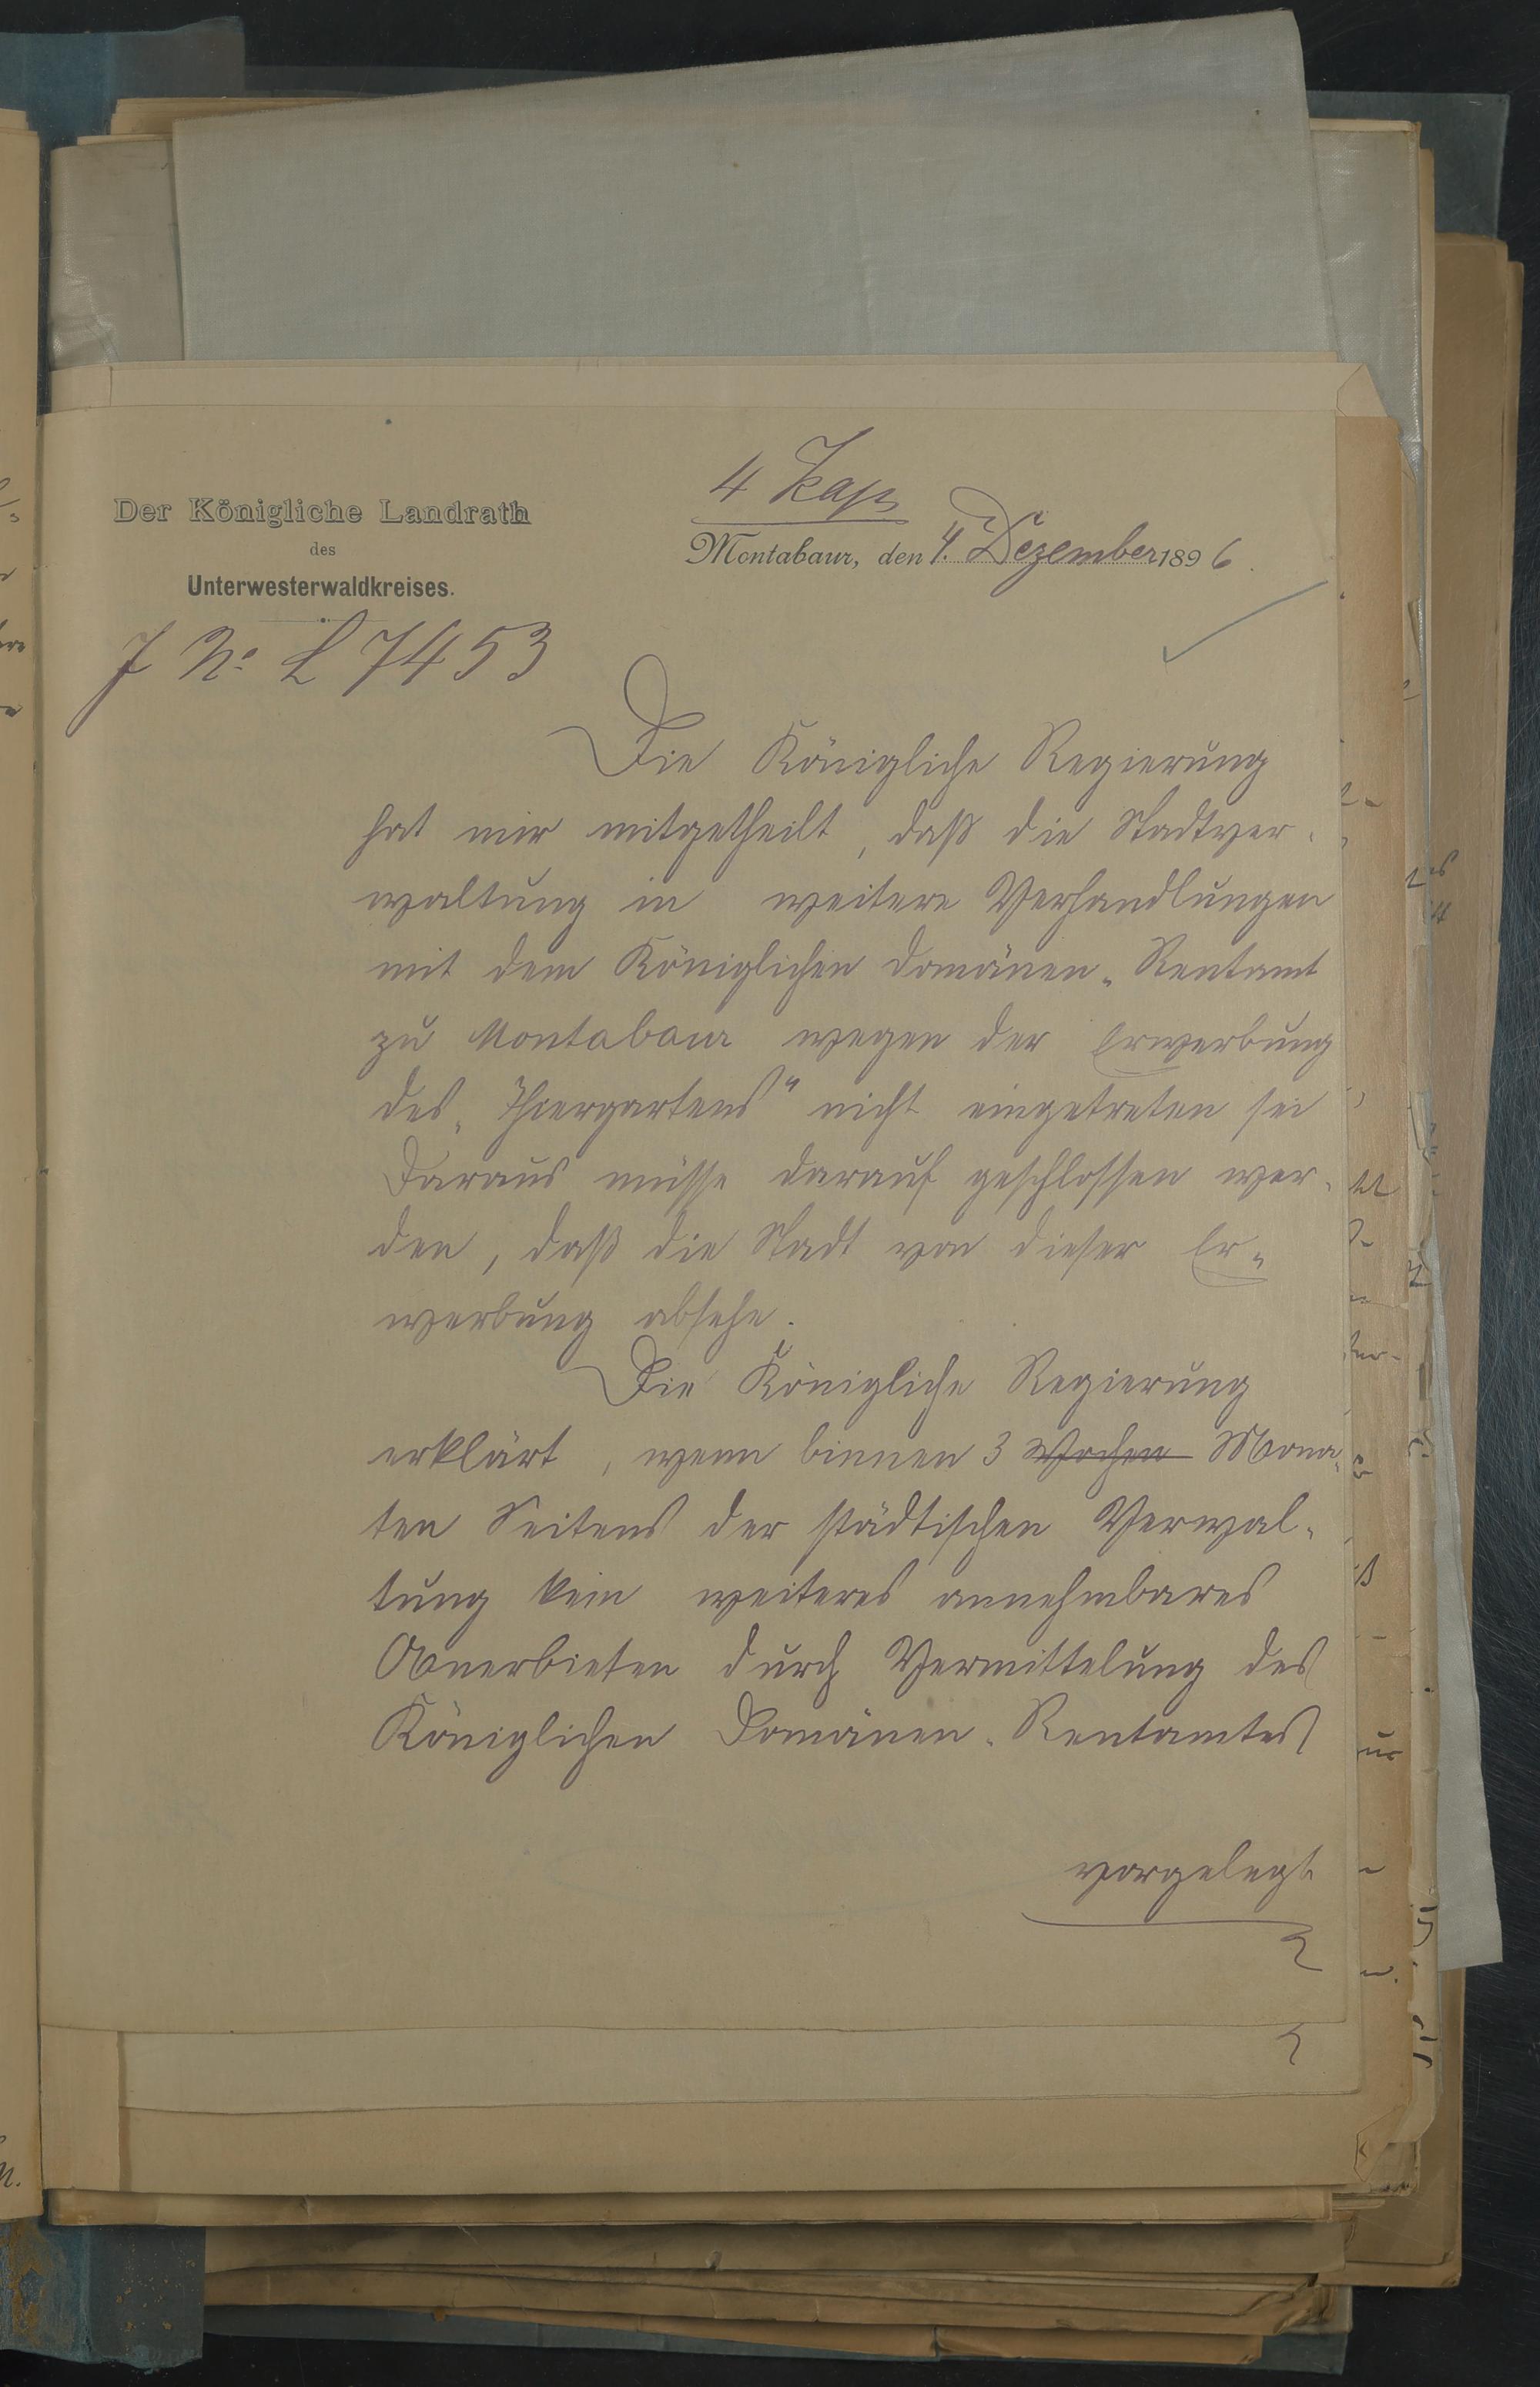 4 Kap
Der Königliche Landrath
des
Unterwesterwaldkreises.
Montabaur, den 4. Dezember 1896.
J No L 7453
Die Königliche Regierung
hat mir mitgetheilt, daß die Stadtver-
waltung in weitere Verhandlungen
mit dem Königlichen Domänen-Rentamt
zu Montabaur wegen der Erwerbung
des „Thiergartens" nicht eingetreten sei
Daraus müsse darauf geschlossen wer-
den, daß die Stadt von dieser Er-
werbung absehe.
Die Königliche Regierung
erklärt, wenn binnen 3 Wochen Mona-
ten Seitens der städtischen Verwal-
tung kein weiteres annehmbares
Anerbieten durch Vermittelung des
Königlichen Domänen-Rentamtes
vorgelegt